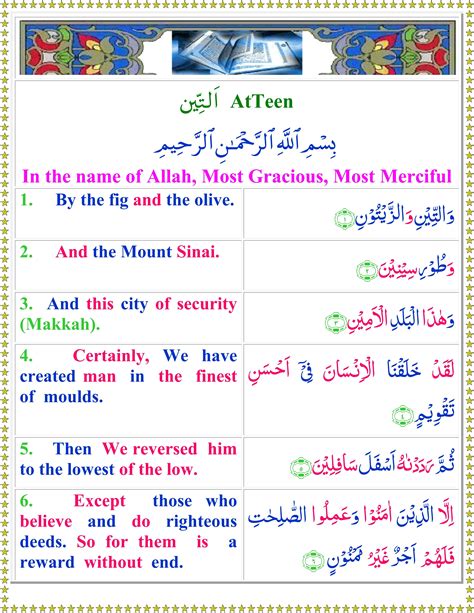 اَلتِّيْن AtTeen
بِسْمِ ٱللَّهِ ٱلرَّحْمَٰنِ ٱلرَّحِيمِ
In the name of Allah, Most Gracious, Most Merciful
1. By the fig and the olive.
وَالتِّيْنِ وَالزَّيْتُوْنِ ۝١
2. And the Mount Sinai.
وَطُوْرِ سِيْنِيْنَ ۝٢
3. And this city of security
(Makkah).
وَهٰذَا الْبَلَدِ الْاَمِيْنِ ۝٣
4. Certainly, We have
created man in the finest
of moulds.
لَقَدْ خَلَقْنَا الْاِنْسَانَ فِيْۤ اَحْسَنِ
تَقْوِيْمٍ ۝٤
5. Then We reversed him
to the lowest of the low.
ثُمَّ رَدَدْنٰهُ اَسْفَلَ سَافِلِيْنَ ۝٥
6. Except those who
believe and do righteous
deeds. So for them is a
reward without end.
اِلَّا الَّذِيْنَ اٰمَنُوْا وَعَمِلُوا الصّٰلِحٰتِ
فَلَهُمْ اَجْرٌ غَيْرُ مَمْنُوْنٍ ۝٦